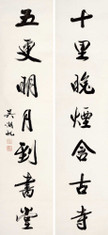 十里晚煙含古寺
五更明月到書堂